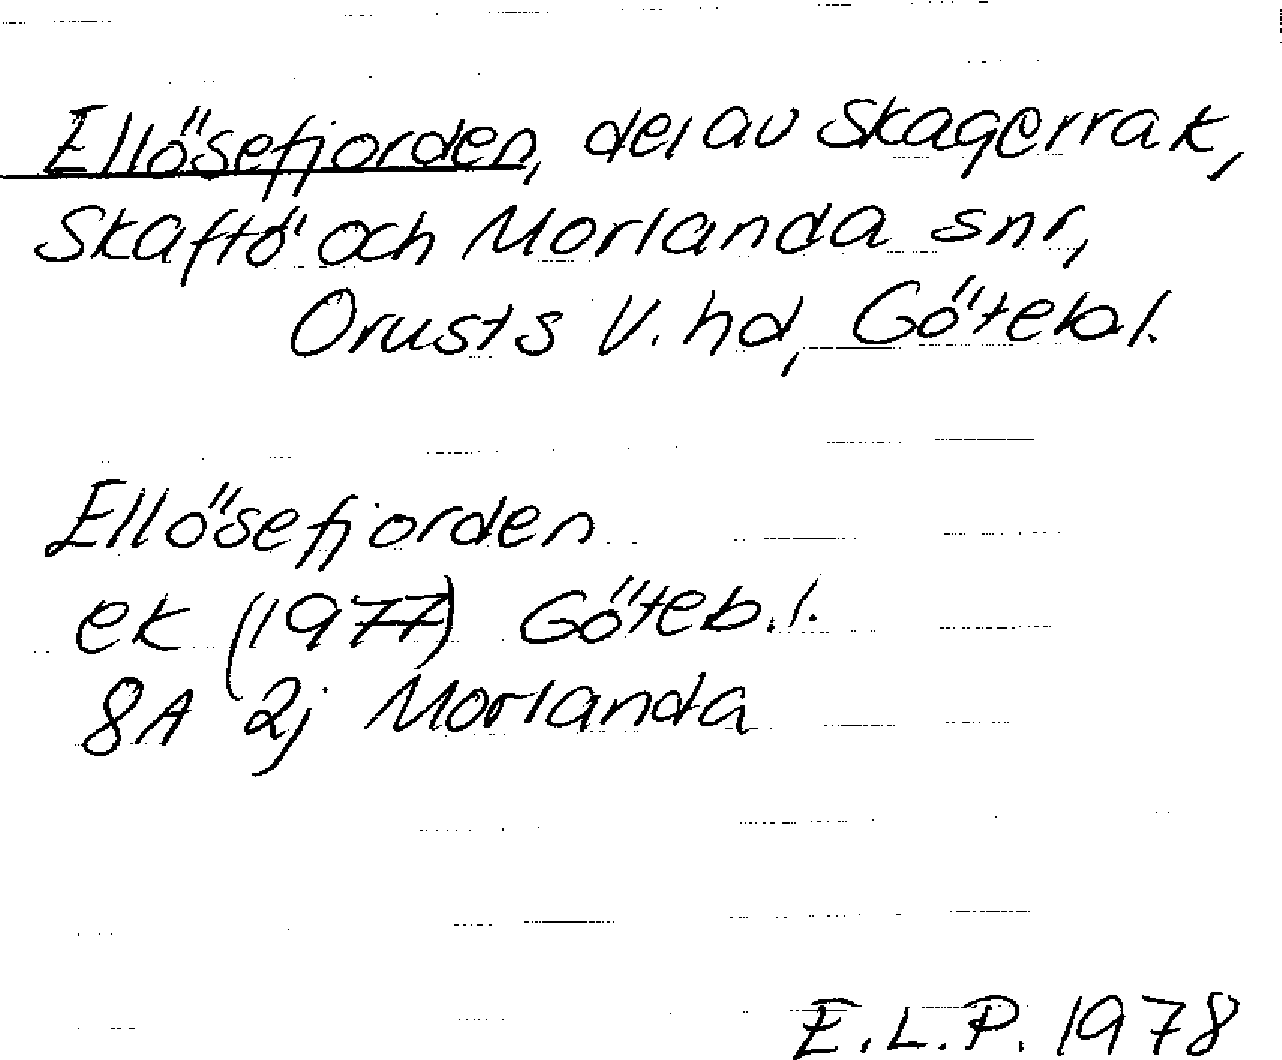 Ellösefjorden, del av Skagerrak,
Skaftö och Morlanda snr,
Orusts V. hd, Göteb. l.
Ellösefjorden
ek (1977) Göteb. l.
8A 2j Morlanda
E.L.P. 1978